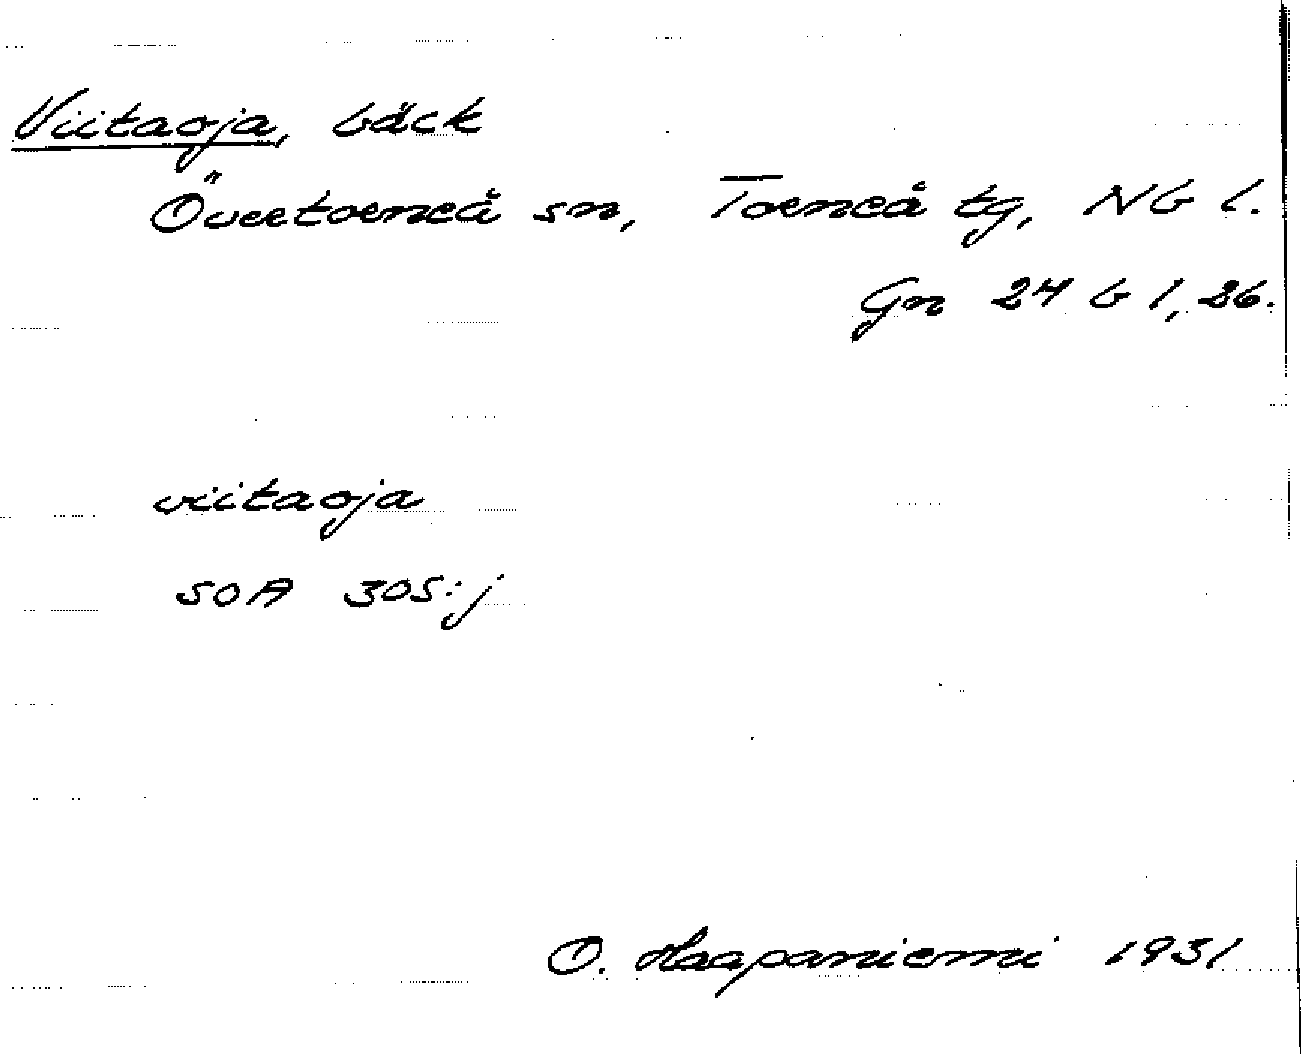 Viitaoja, bäck
Övertorneå sn, Torneå tg, Nb l.
Gn 24 b 1, 26.
viitaoja
SOA 305:j
O. Haapaniemi 1931